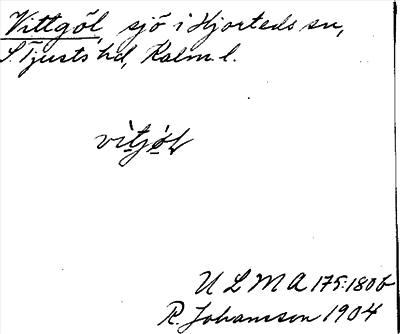 Vittgöl, sjö i Hjorteds sn,
S. Tjusts hd, Kalm. l.
vìtjö̀l
ULMA 175:180b
R. Johansson 1904